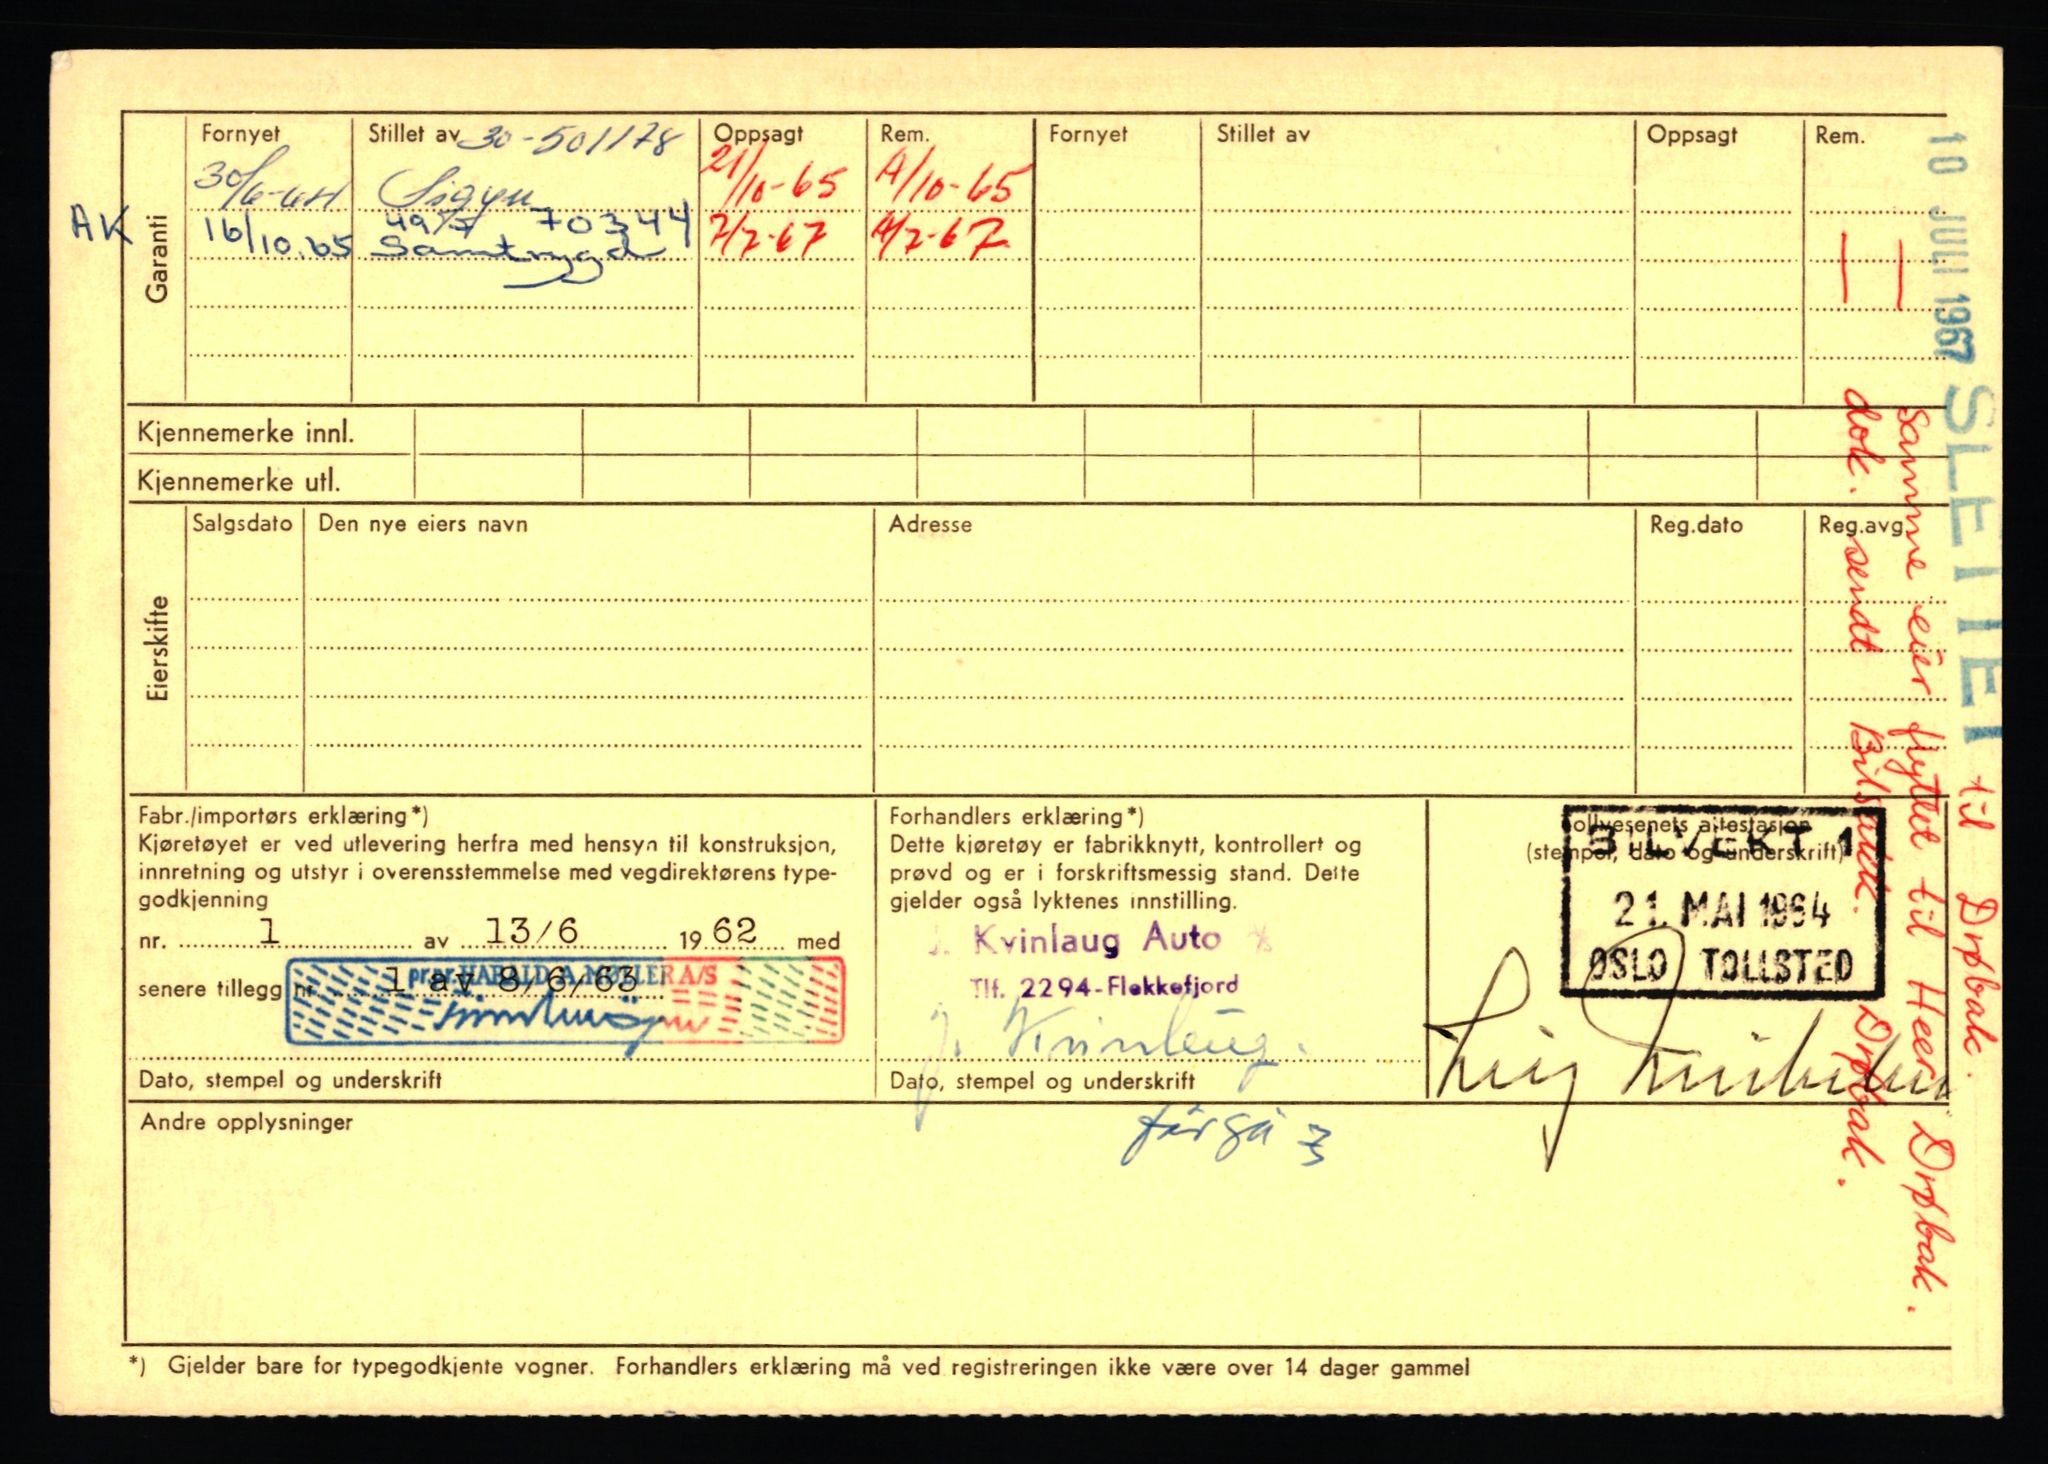 Garanti
Fornyet Stillet av 30-501178 Oppsagt Rem. Fornyet Stillet av Oppsagt Rem.
30/6-64 Sigyn 21/10-65 A/10-65
AK 16/10.65 70344 7/2-67 A/2-67
Samtrygd
Kjennemerke innl.
Kjennemerke utl.
Eierskifte
Salgsdato Den nye eiers navn Adresse Reg.dato Reg.avg.
Fabr./importørs erklæring*)
Kjøretøyet er ved utlevering herfra med hensyn til konstruksjon,
innretning og utstyr i overensstemmelse med vegdirektørens type-
godkjenning
nr. 1 av 13/6 1962 med
senere tillegg nr. 1 av 8/6/63
pr.pr. HARALD A. MØLLER A/S
Dato, stempel og underskrift
Forhandlers erklæring*)
Dette kjøretøy er fabrikknytt, kontrollert og
prøvd og er i forskriftsmessig stand. Dette
gjelder også lyktenes innstilling.
J. Kvinlaug Auto
Tlf. 2294-Flekkefjord
J. Kvinlaug.
Dato, stempel og underskrift
Tollvesenets attestasjon
(stempel, dato og underskrift)
BILVEKT 1
21. MAI 1964
ØSLO TOLLSTED
Andre opplysninger
*) Gjelder bare for typegodkjente vogner. Forhandlers erklæring må ved registreringen ikke være over 14 dager gammel
10 JULI 1967 SLETTET til Drøbak.
Samme eier flyttet til Heer Drøbak.
dok. sendt Bilsakk. Drøbak.